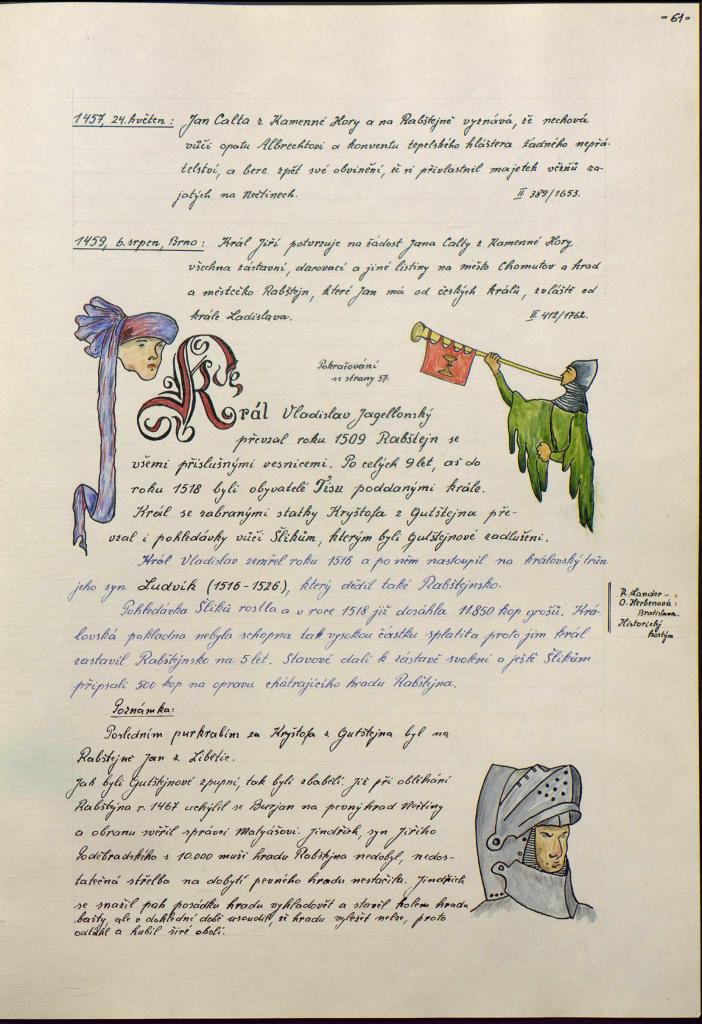 - 61 -
1457, 24. květen : Jan Calta z Kamenné Hory a na Rabštejně vyznává, že nechová
vůči opatu Albrechtovi a konventu tepelského kláštera žádného nepřá-
telství, a bere zpět své obvinění, že si přivlastnil majetek vězňů za-
jatých na Nečtinech. II 389/1653.
1459, 6. srpen, Brno : Král Jiří potvrzuje na žádost Jana Calty z Kamenné Hory
všechna zástavní, darovací a jiné listiny na město Chomutov a hrad
a městečko Rabštejn, které Jan má od českých králů, zvláště od
krále Ladislava. II 412/1762.
Pokračování
se strany 57.
Král Vladislav Jagellonský
převzal roku 1509 Rabštejn se
všemi příslušnými vesnicemi. Po celých 9 let, až do
roku 1518 byli obyvatelé Tisu poddanými krále.
Král se zabranými statky Kryštofa z Gutštejna pře-
vzal i pohledávky vůči Šlikům, kterým byli Gutštejnové zadluženi.
Král Vladislav zemřel roku 1516 a po něm nastoupil na královský trůn
jeho syn Ludvík (1516-1526), který dědil také Rabštejnsko.
Pohledávka Šliků rostla a v roce 1518 již dosáhla 11850 kop grošů. Krá-
lovská pokladna nebyla schopna tak vysokou částku splatit a proto jim král
zastavil Rabštejnsko na 5 let. Stavové dali k zástavě svolení a ještě Šlikům
připsali 500 kop na opravu chátrajícího hradu Rabštejna.
R. Lander -
O. Herbenová :
Bratislava.
Historický
kostým
Poznámka:
Posledním purkrabím za Kryštofa z Gutštejna byl na
Rabštejně Jan z Libětic.
Jak byli Gutštejnové zpupní, tak byli zbabělí. Již při obléhání
Rabštejna r. 1467 uchýlil se Burjan na pevný hrad Nečtiny
a obranu svěřil správci Matyášovi. Jindřich, syn Jiřího
Poděbradského s 10.000 muži hradu Rabštejna nedobyl, nedos-
tatečná střelba na dobytí pevného hradu nestačila. Jindřich
se snažil pak posádku hradu vyhladovět a stavěl kolem hradu
bašty, ale v dohledné době usoudil, že hradu vyležet nelze, proto
odtáhl a hubil širé okolí.